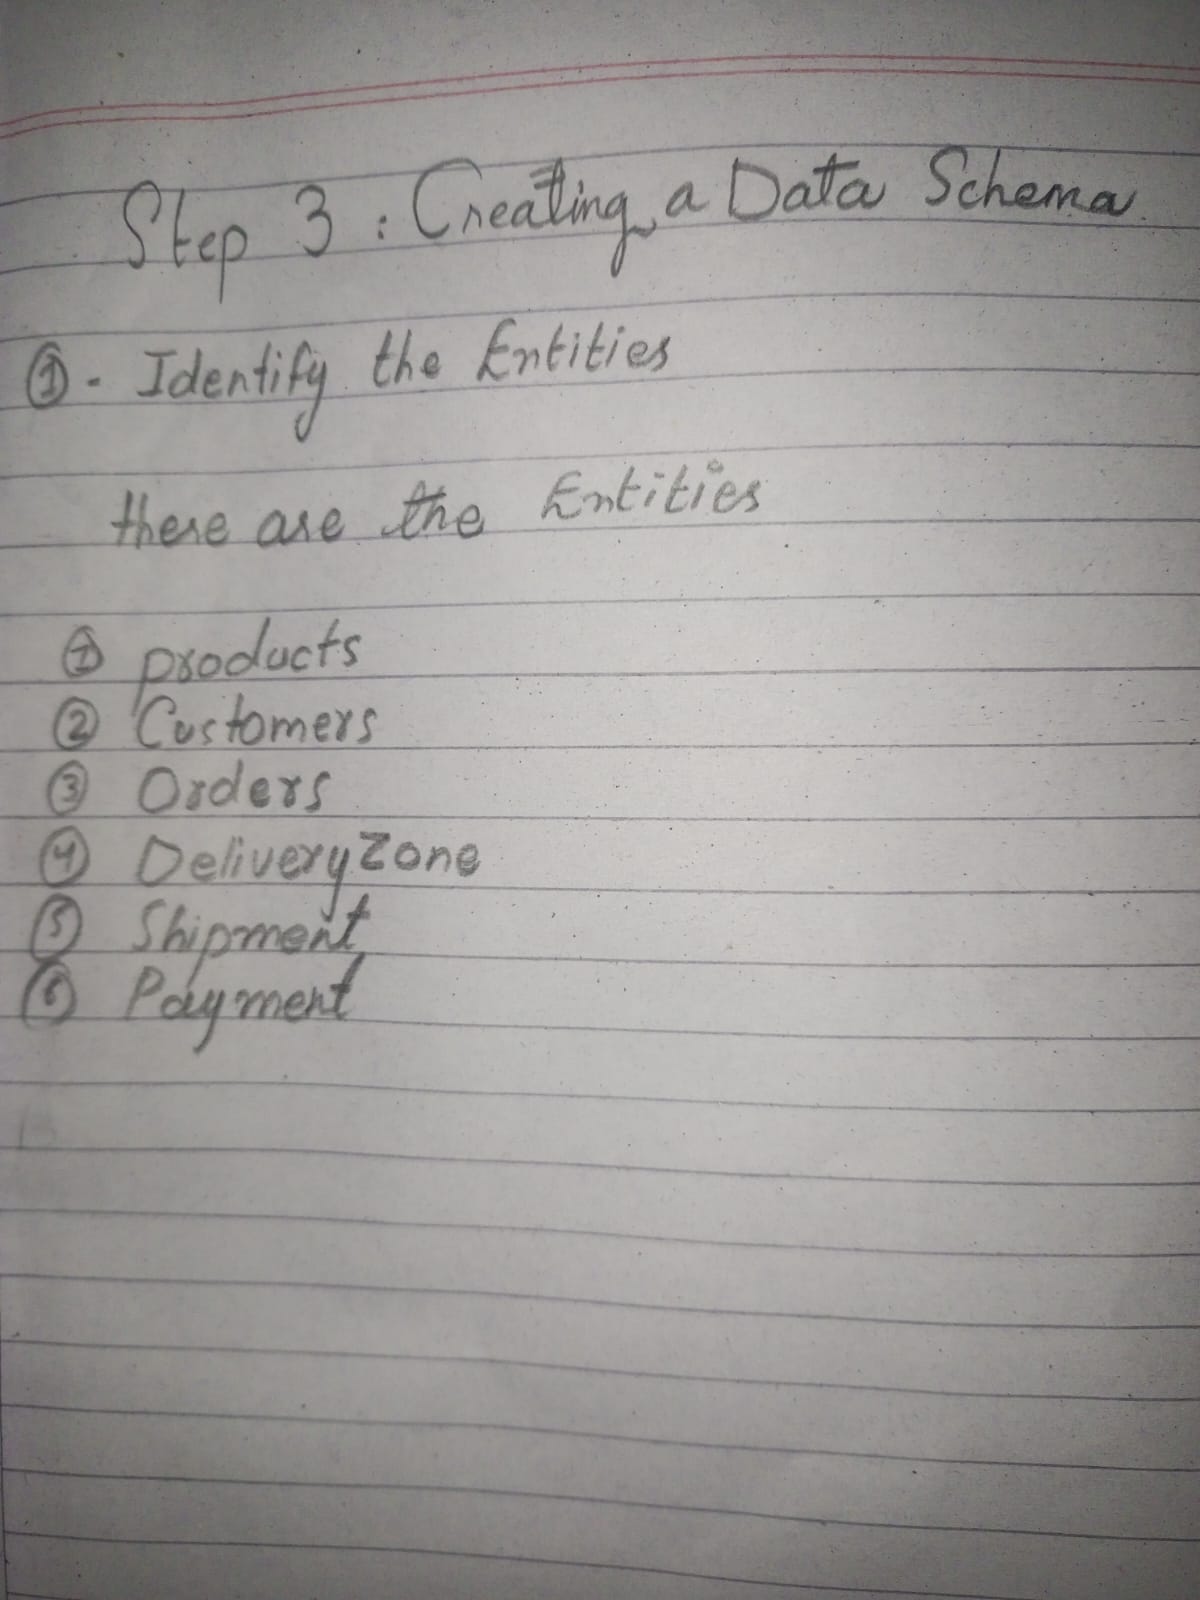 Step 3 : Creating a Data Schema
① - Identify the Entities
these are the Entities
① products
② Customers
③ Orders
④ Delivery Zone
⑤ Shipment
⑥ Payment